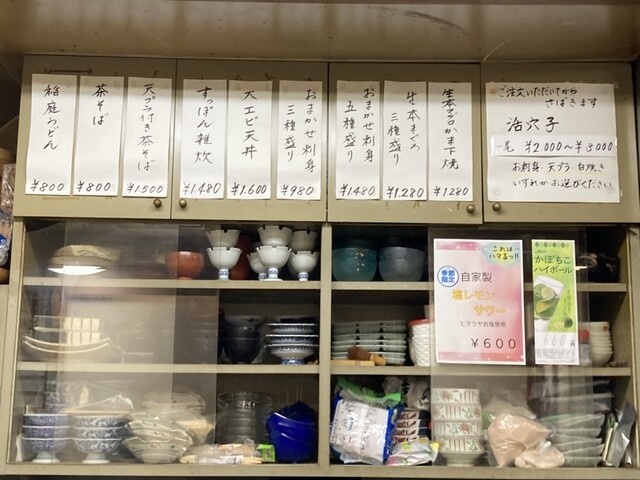 稲庭うどん
¥800
茶そば
¥800
天プラ付き茶そば
¥1.500
すっぽん雑炊
¥1.480
大エビ天丼
¥1.600
おまかせ刺身
三種盛り
¥980
おまかせ刺身
五種盛り
¥1.480
生本まぐろ
三種盛り
¥1.280
生本マグロかま下焼
¥1280
ご注文いただいてから
さばきます
活穴子
一尾 ¥2000～¥3000
お刺身・天プラ・白焼き
いずれかお選びください
これは
ハマるっ!!
季節
限定
自家製
塩レモン
サワー
ヒマラヤ岩塩使用
¥600
かぼちこ
ハイボール
660円